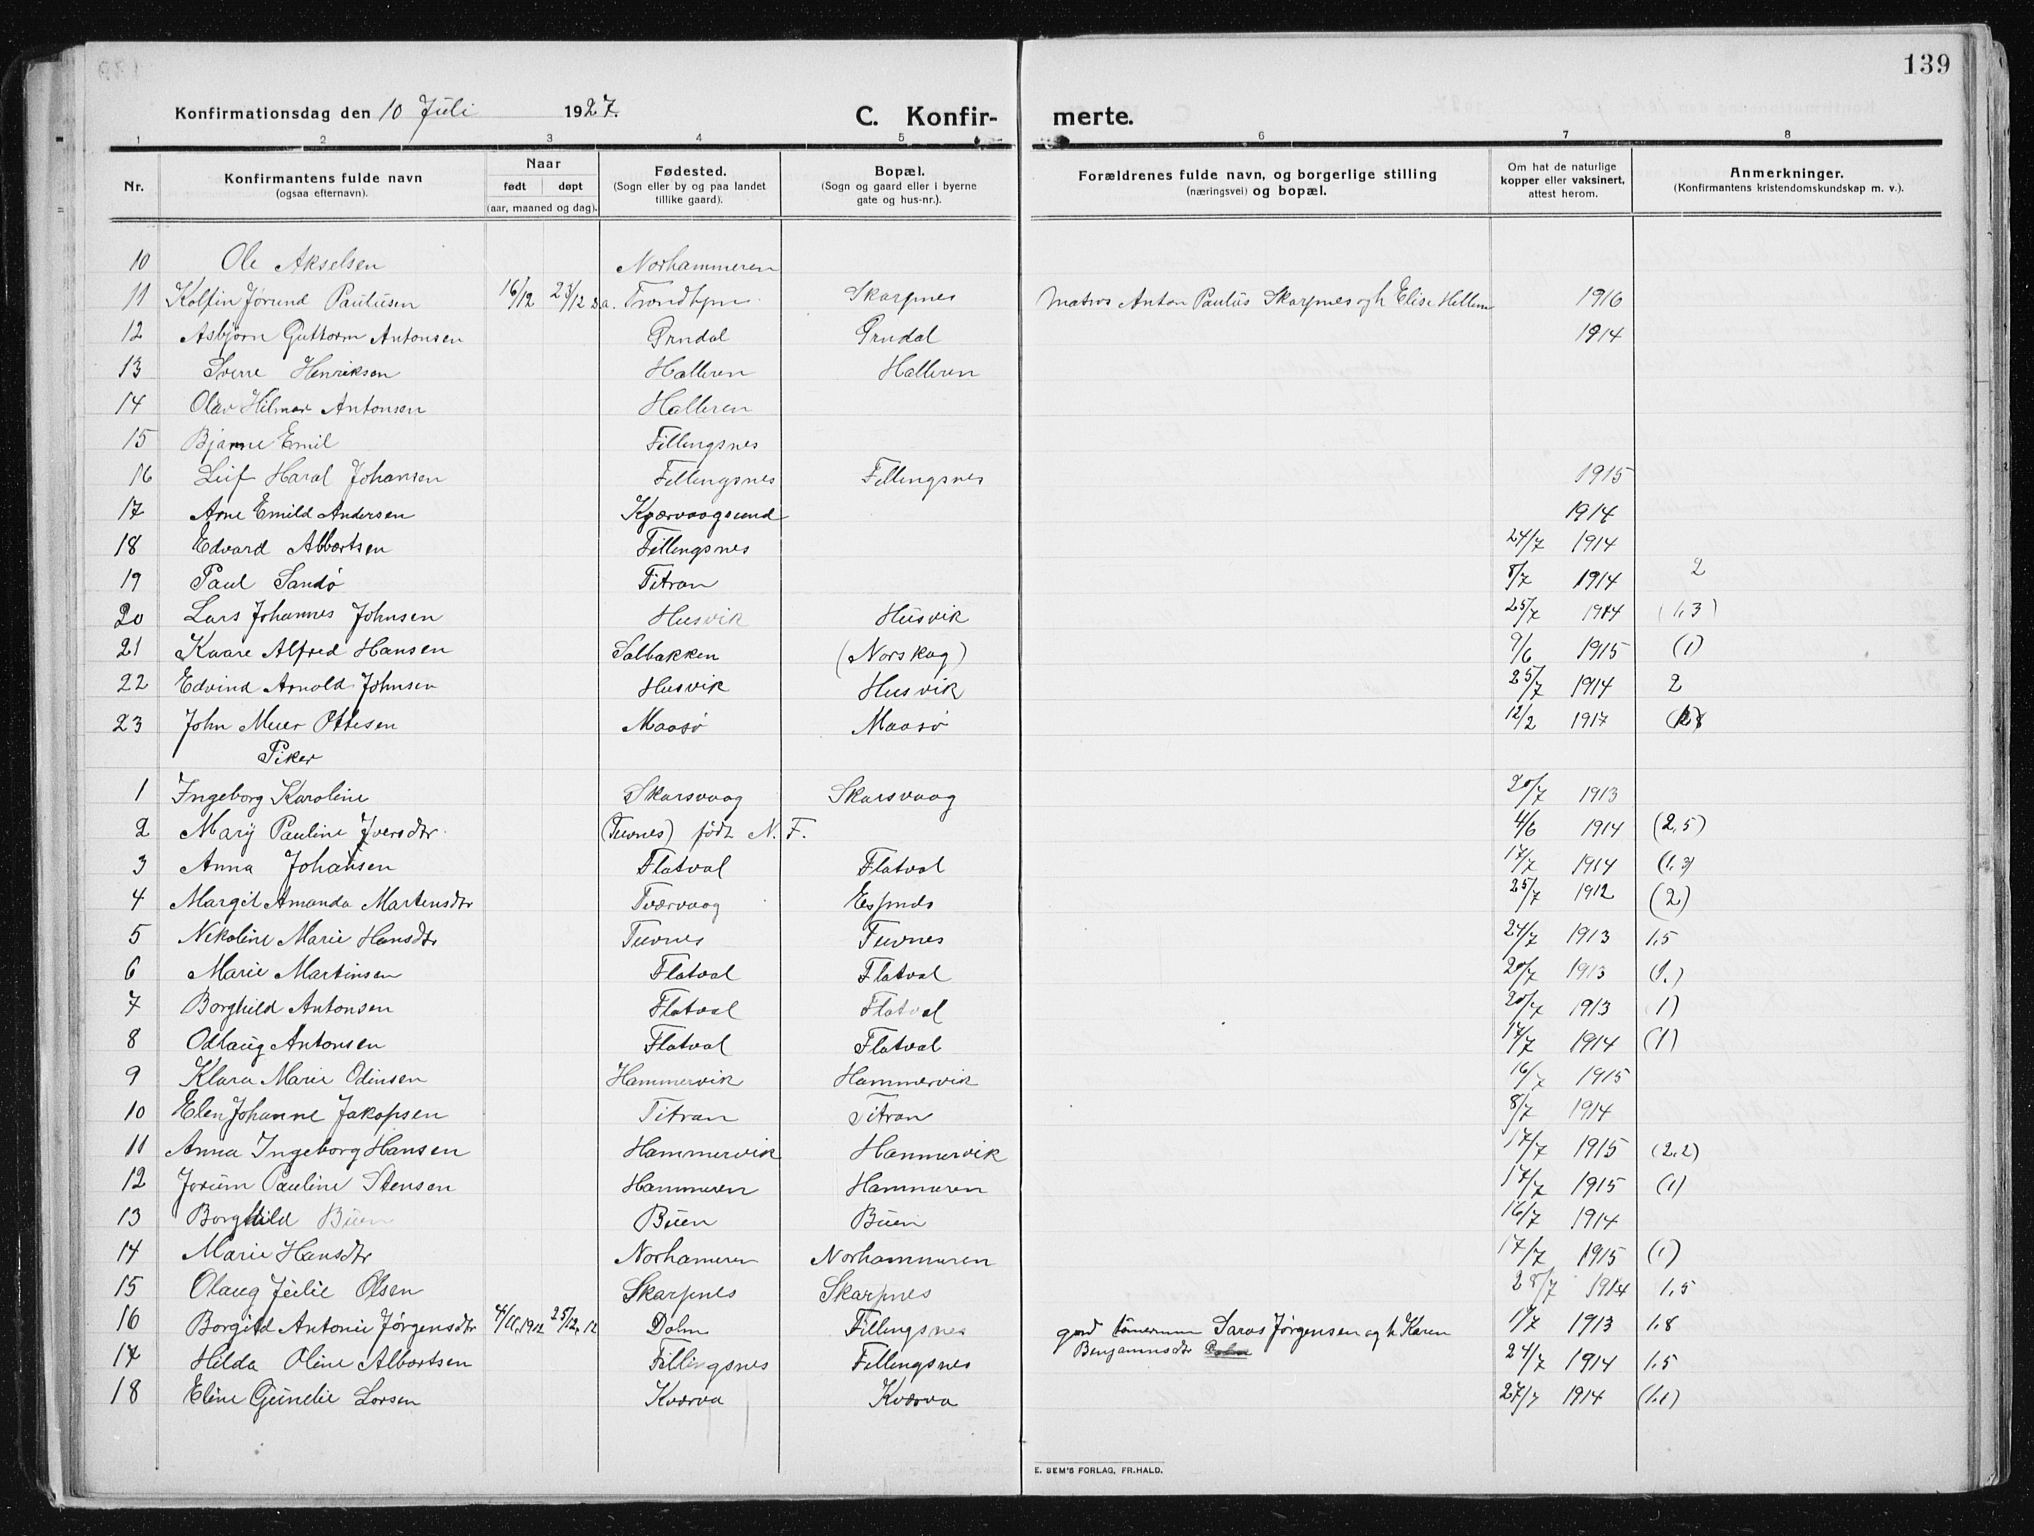 139
Konfirmationsdag den 10 Juli 1927. C. Konfir- merte.
1 2 3 4 5 6 7 8
Nr. Konfirmantens fulde navn (ogsaa efternavn). Naar født døpt (aar, maaned og dag). Fødested. (Sogn eller by og paa landet tillike gaard). Bopæl. (Sogn og gaard eller i byerne gate og hus-nr.). Forældrenes fulde navn, og borgerlige stilling (næringsvei) og bopæl. Om hat de naturlige kopper eller vaksinert, attest herom. Anmerkninger. (Konfirmantens kristendomskundskap m. v.).
10 Ole Akselsen Norhammeren
11 Kolfin Jørund Paulusen 16/12 23/12 s.a. Trondhjm Skarpnes Matros Anton Paulus Skarpnes og h Elise Hellem 1916
12 Asbjørn Guttorm Antonsen Grndal Grndal 1914
13 Sverre Henriksen Halleren Halleren
14 Olav Hilmar Antonsen Halleren
15 Bjarne Emil Fillingsnes
16 Leif Haral Johansen Fillingsnes Fillingsnes 1915
17 Arne Emild Andersen Kjærvaagsund 1914
18 Edvard Albertsen Fillingsnes 24/7 1914
19 Paul Sandø Titran 8/7 1914 2
20 Lars Johannes Johnsen Husvik Husvik 25/7 1914 (1,3)
21 Kaare Alfred Hansen Salbakken (Norskag) 9/6 1915 (1)
22 Edvind Arnold Johnsen Husvik Husvik 25/7 1914 2
23 John Meier Ottesen Maasø Maasø 12/2 1917
Piker
1 Ingeborg Karoline Skarsvaag Skarsvaag 20/7 1913
2 Mary Pauline Iversdtr. (Tuvnes) født N. F. 4/6 1914 (2,5)
3 Anna Johansen Flatval Flatval 17/7 1914 (1,3)
4 Margit Amanda Martensdtr Tværvaag Espnds 25/7 1912 (2)
5 Nikoline Marie Hansdtr Tuvnes Tuvnes 24/7 1913 1,5
6 Marie Martinsen Flatval Flatval 20/7 1913 (1.)
7 Borghild Antonsen Flatval Flatval 20/7 1913 (1)
8 Odlaug Antonsen Flatval Flatval 17/7 1914 (1)
9 Klara Marie Odinsen Hammervik Hammervik 16/7 1915
10 Elen Johanne Jakopsen Titran Titran 8/7 1914
11 Anna Ingeborg Hansen Hammervik Hammervik 17/7 1915 (2,2)
12 Jorum Pauline Stensen Hammeren Hammeren 17/7 1915 (1)
13 Borghild Buen Buen Buen 16/7 1914
14 Marie Hansdtr Norhameren Norhammeren 17/7 1915 (1)
15 Olaug Julie Olsen Skarpnes Skarpnes 28/7 1914 1,5
16 Borgild Antonie Jørgensdtr 4/11,1912 25/12,12 Dolm Fillingsnes gard Saras Jørgensen og h. Karen 1/7 1913 1,8
Benjaminsdtr
17 Hilda Oline Albertsen Fillingsnes Fillingsnes 24/7 1914 1,5
18 Eline Gunelie Larsen Kværva Kværva 27/7 1914 (1,1)
E. SEM'S FORLAG, FR.HALD.